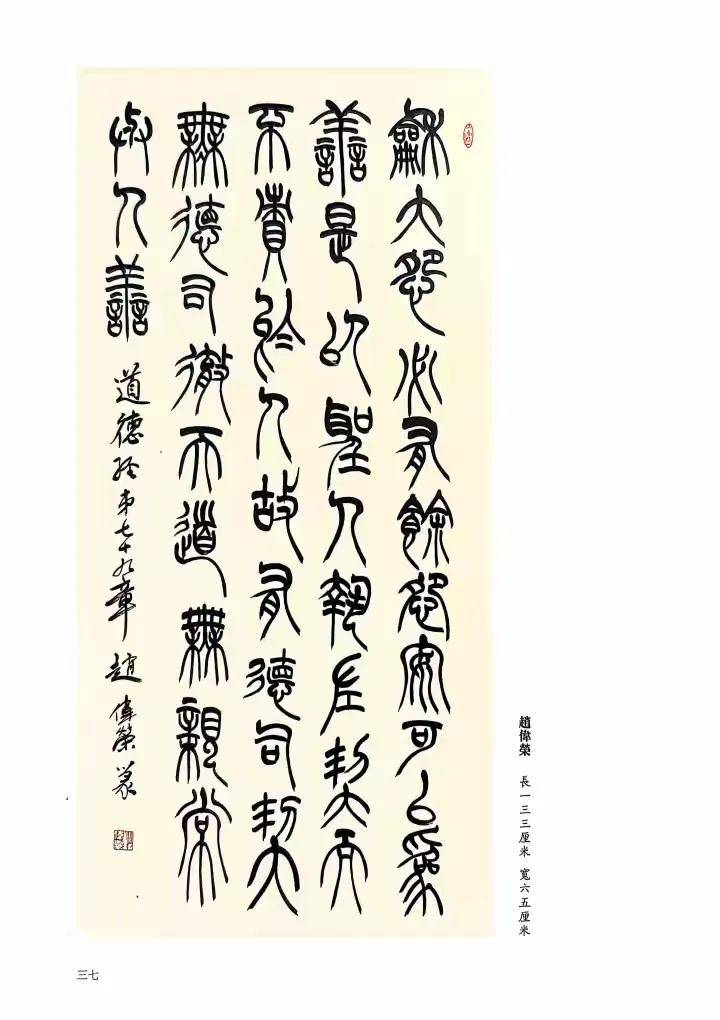 龢大怨必有餘怨安可以為
善是以聖人執左契而
不責於人故有德司契
無德司徹天道無親常
與人善 道德經第七十九章 趙偉榮篆
趙偉榮 長一三三厘米 寬六五厘米
三七